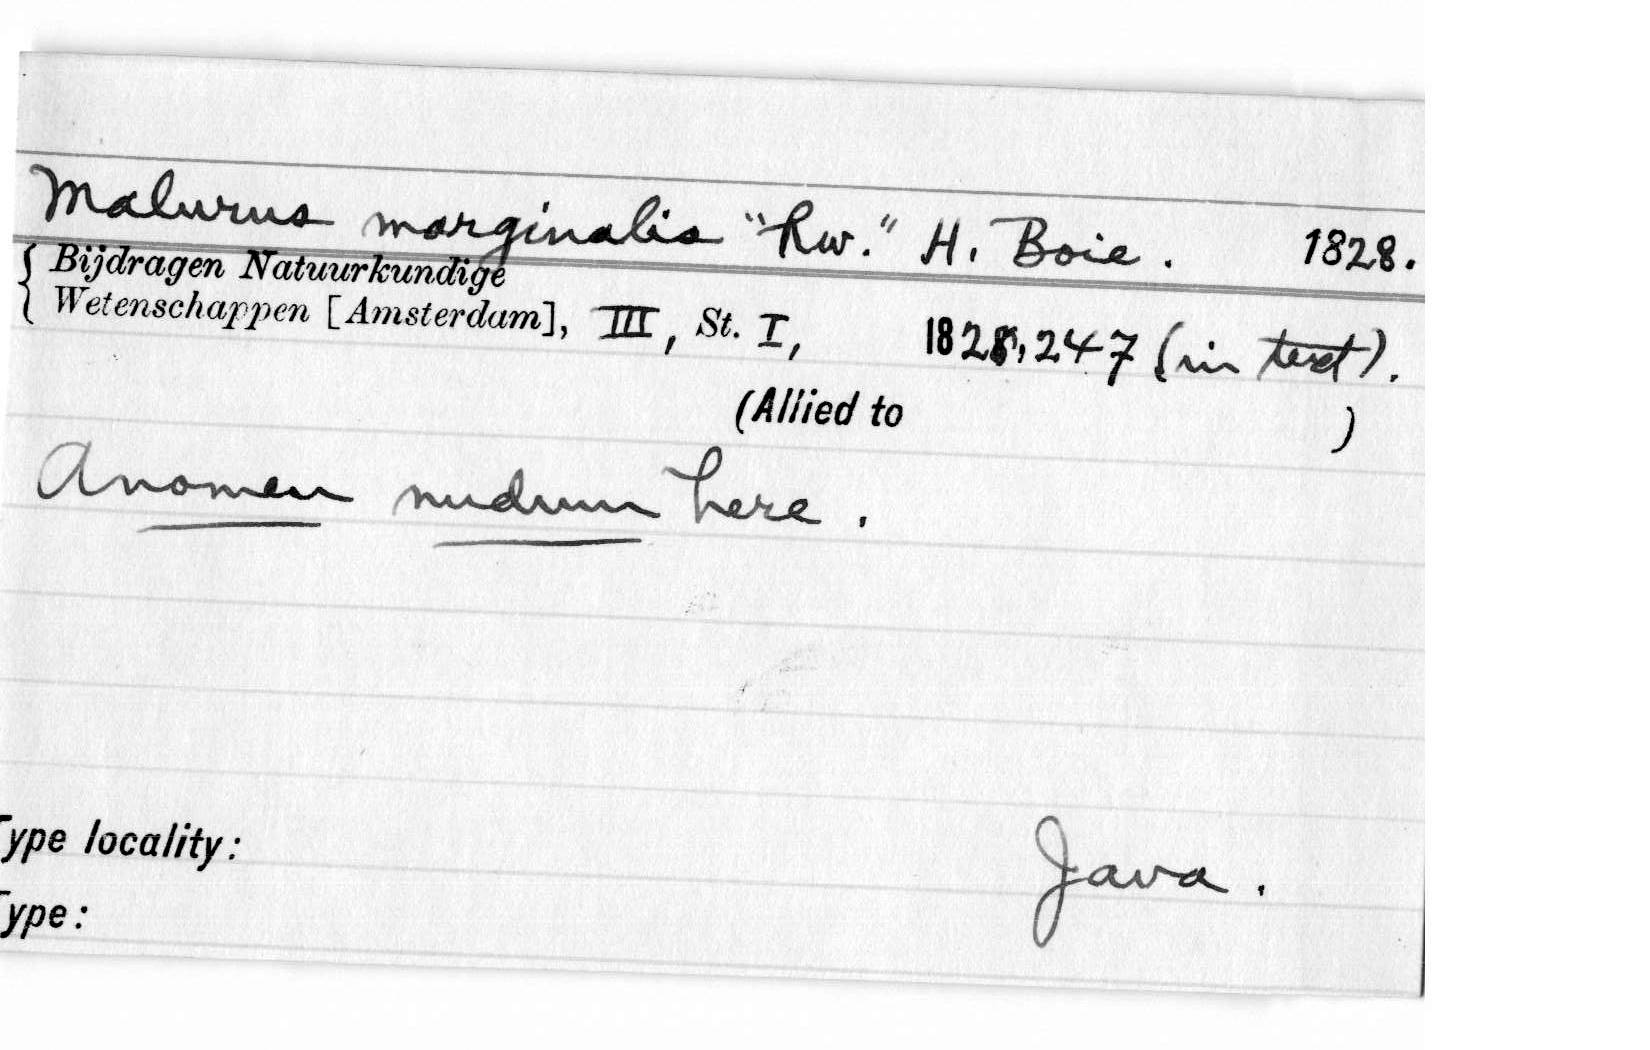 Malurus marginalis "Rw." H. Boie. 1828.
Bijdragen Natuurkundige
Wetenschappen [Amsterdam], III, St. I, 1828, 247 (in text).
(Allied to )
A nomen nudum here.
Type locality: Java.
Type: